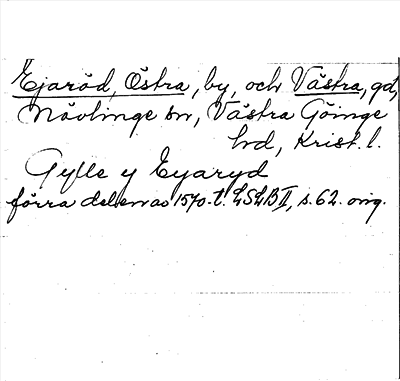 Ejaröd, Östra, by, och Västra, gd,
Nävlinge sn, Västra Göinge
hd, Krist. l.
Gylle y Eyaryd
förra delen av 1570-t. LSLB II, s. 62. orig.